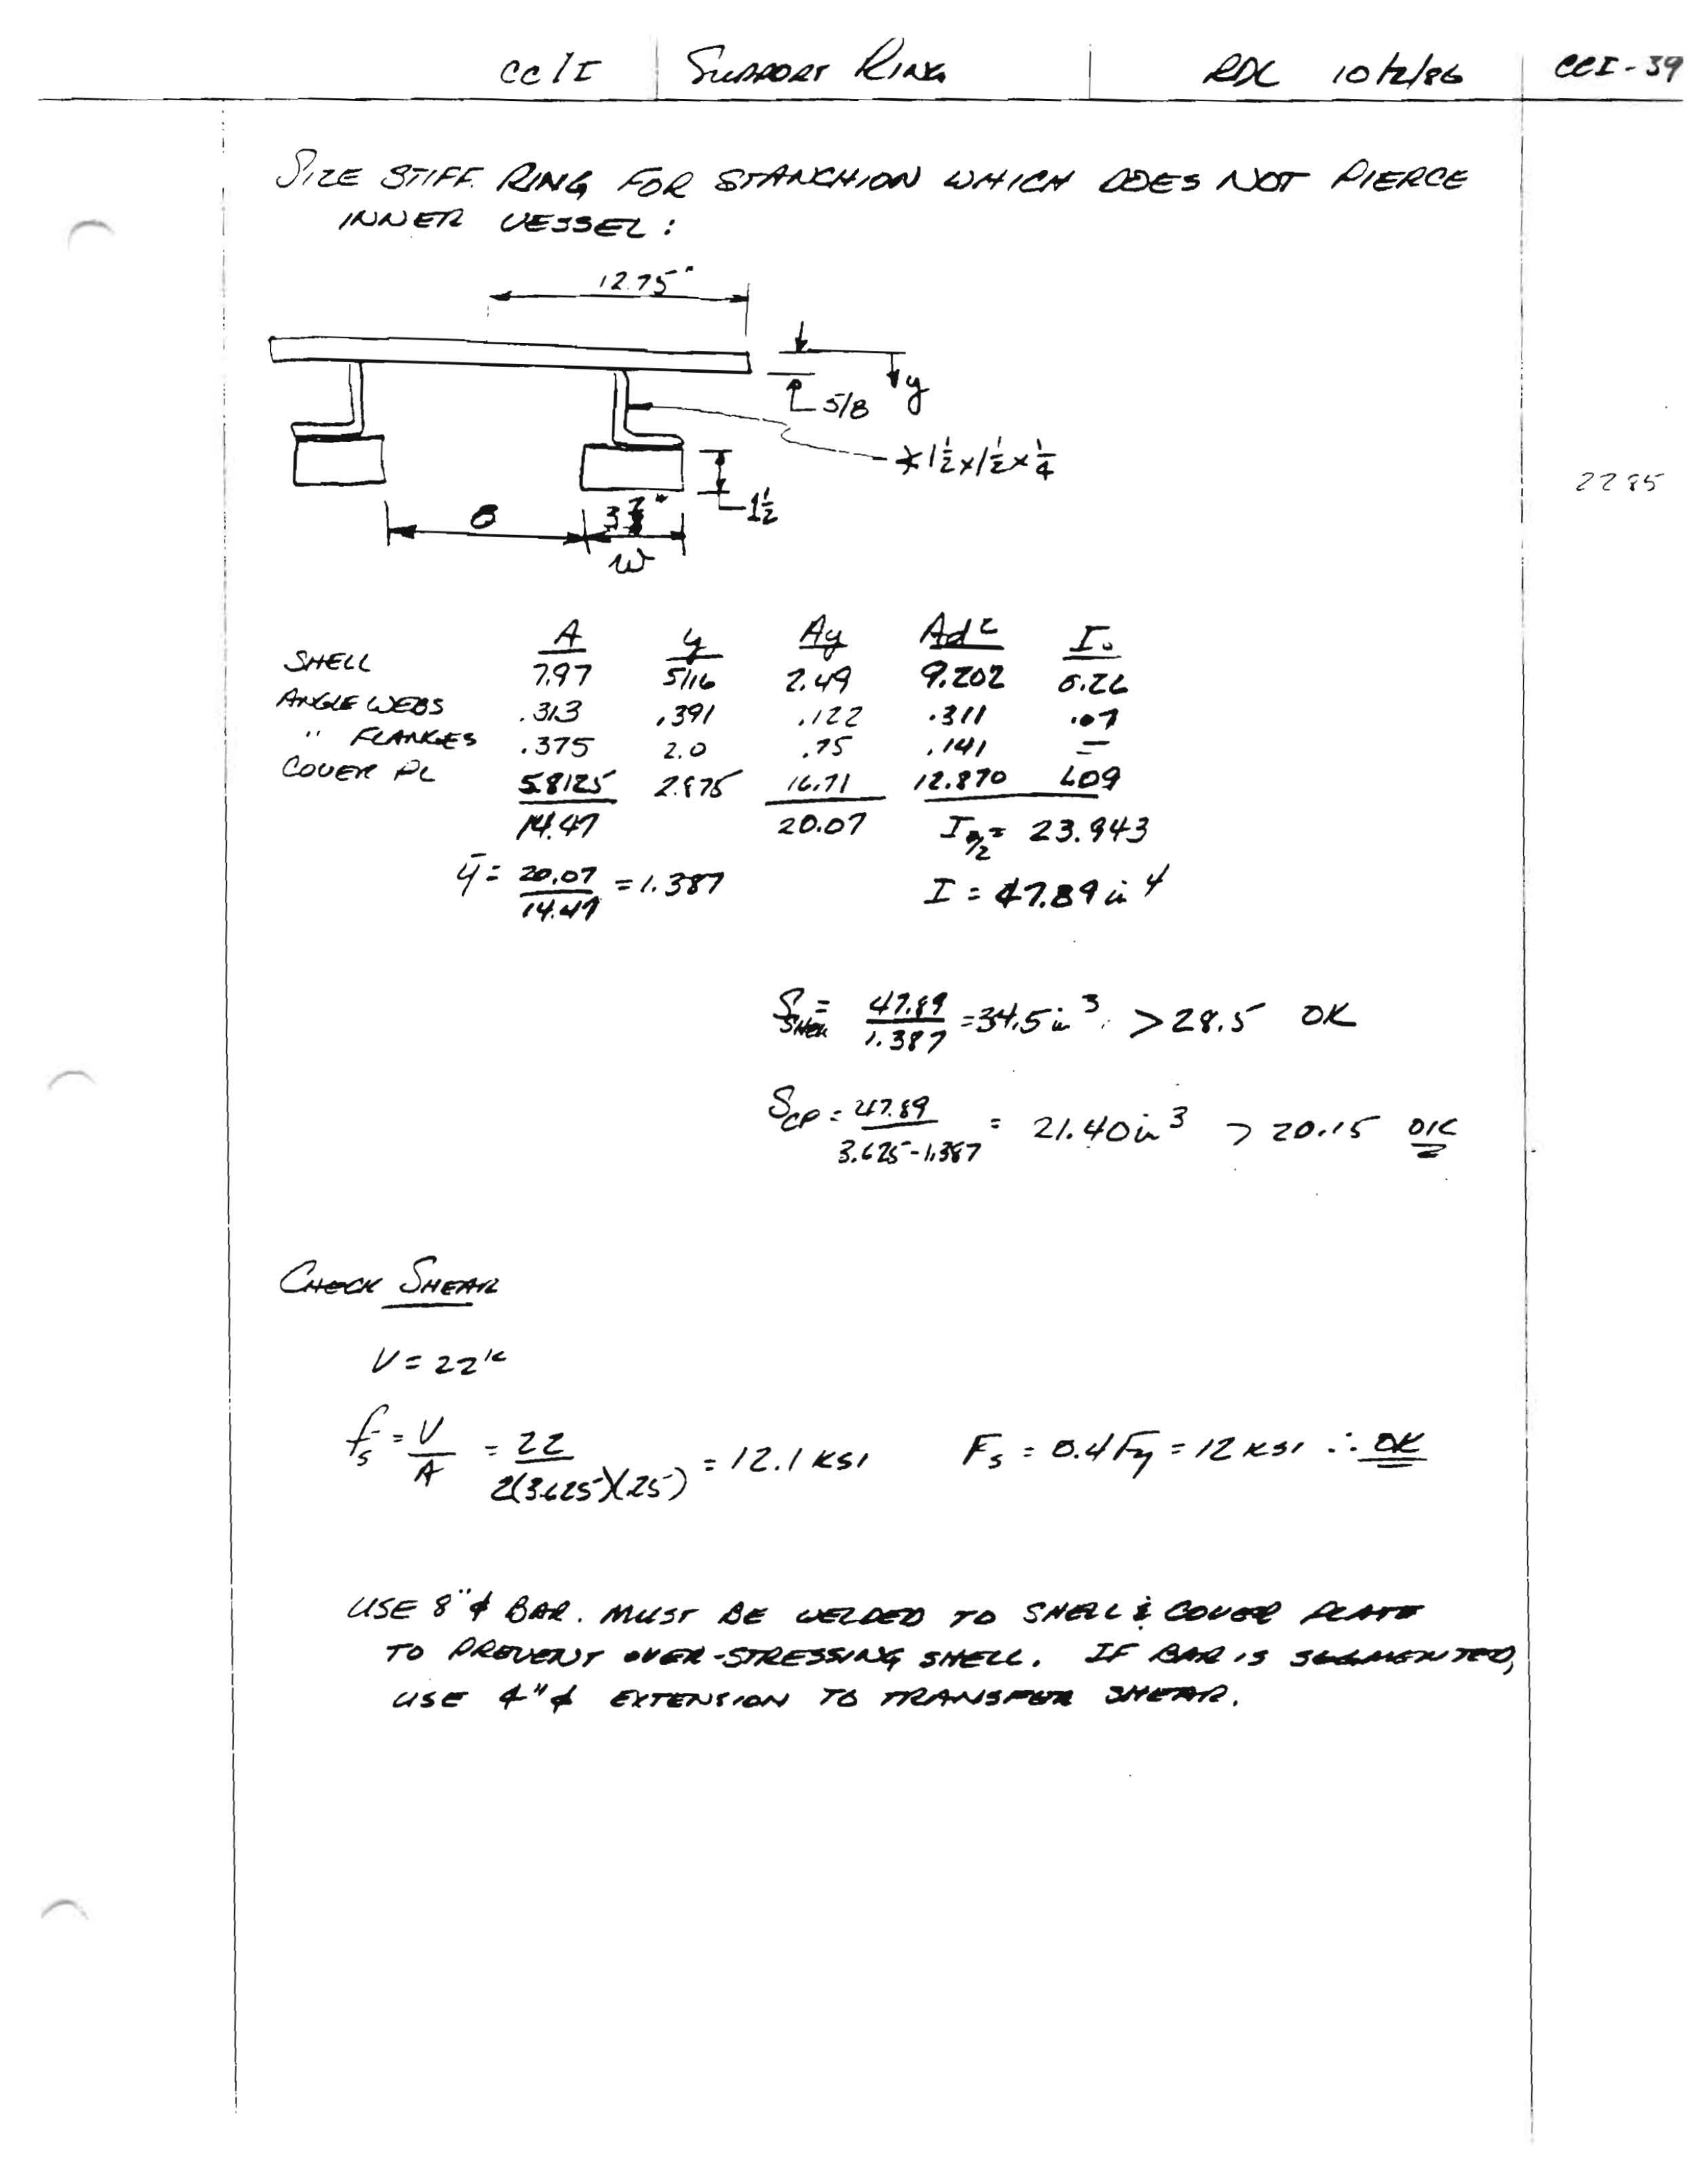 CC/I SUPPORT RING RDC 10/2/86 CCI-39
SIZE STIFF. RING FOR STANCHION WHICH DOES NOT PIERCE
INNER VESSEL:
12.75"
5/8 y
∡ 1 1/2 x 1 1/2 x 1/4
2285
1 1/2
8
W
A y Ay Ad² I₀
SHELL 7.97 5/16 2.49 9.202 0.26
ANGLE WEBS .313 .391 .122 .311 .07
" FLANGES .375 2.0 .75 .141 —
COVER PL 5.8125 2.875 16.71 12.870 1.09
14.47 20.07 I/2 = 23.943
ȳ = 20.07/14.47 = 1.387 I = 47.89 in⁴
S SHELL = 47.89/1.387 = 34.5 in³ > 28.5 OK
S CP = 47.89/(3.625-1.387) = 21.40 in³ > 20.15 OK
CHECK SHEAR
V = 22 ᵏ
fs = V/A = 22/2(3.625)(.25) = 12.1 KSI Fs = 0.4Fy = 12 KSI ∴ OK
USE 8"⌀ BAR. MUST BE WELDED TO SHELL & COVER PLATE
TO PREVENT OVER-STRESSING SHELL. IF BAR IS SEGMENTED,
USE 4"⌀ EXTENSION TO TRANSFER SHEAR.